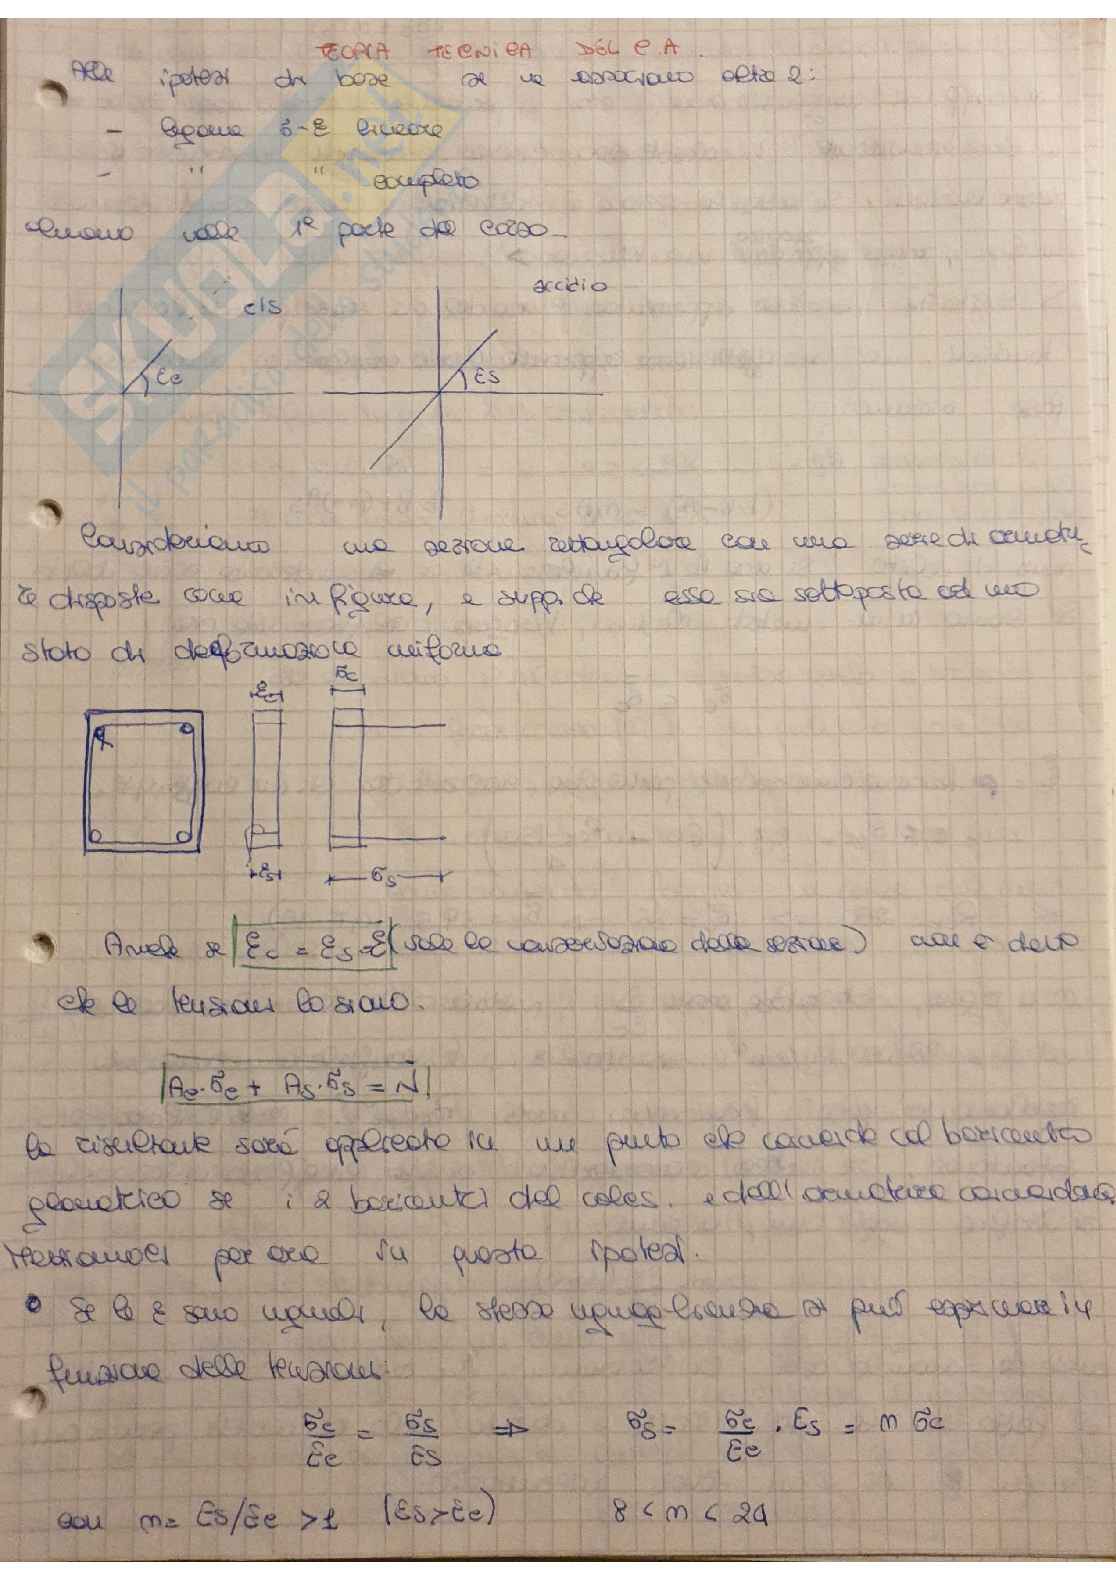 TEORIA TECNICA DEL C.A.
Alle ipotesi di base se ne associano altre 2:
- legame σ-ε lineare
- " " completo
nella 1ª parte del corso.
cls
acciaio
Ec
Es
Consideriamo una sezione rettangolare con una serie di armatu-
re disposte come in figura, e supp. che essa sia sottoposta ad uno
stato di deformazione uniforme
εc
σc
εs
σs
Anche se εc = εs = ε (vale la conservazione della sezione) non è detto
che le tensioni lo siano.
Ac·σc + As·σs = N
la risultante sarà applicata in un punto che coincide col baricentro
geometrico se i 2 baricentri del calces. e dell'armatura coincidono,
Mettiamoci per ora in questa ipotesi.
• Se le ε sono uguali, la stessa uguaglianza si può esprimere in
funzione delle tensioni:
σc/Ec = σs/Es ⇒ σs = σc/Ec · Es = n σc
con n = Es/Ec > 1 (Es>Ec) 8 < n < 24
SKUOLA.net
il portale degli studenti